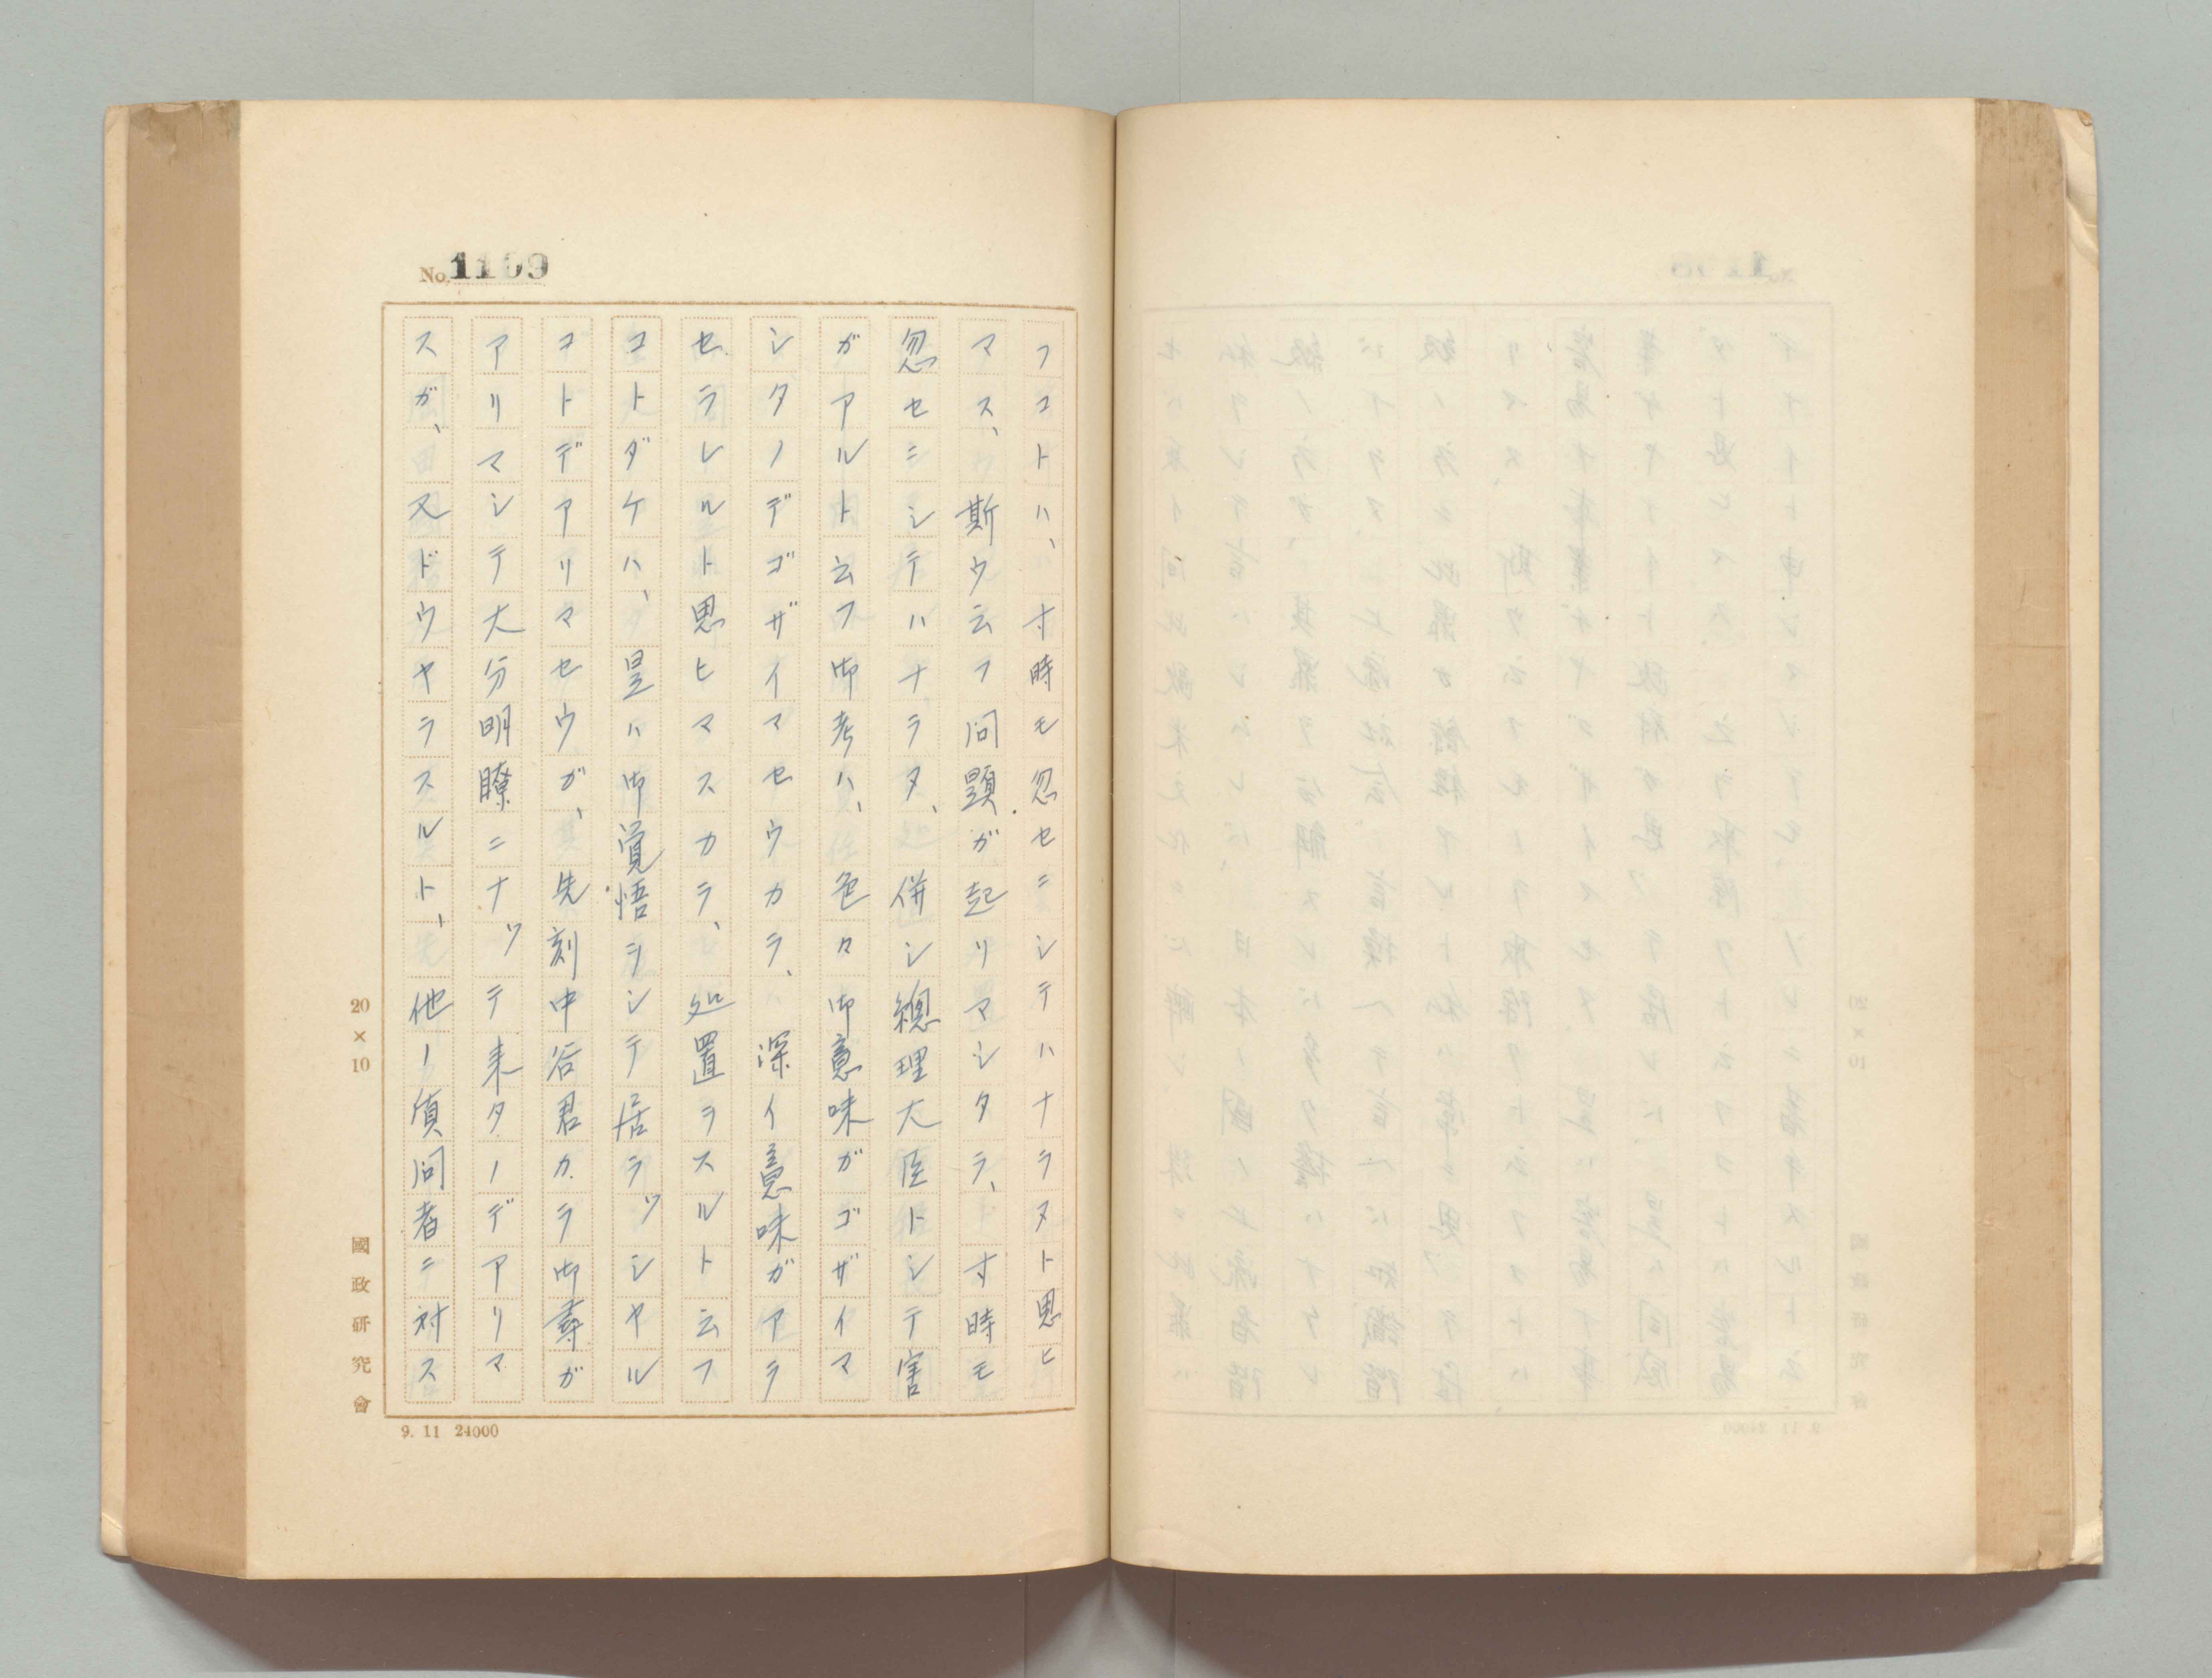 No. 1109
フコトハ、寸時モ忽セニシテハナラヌト思ヒ
マス、斯ウ云フ問題ガ起リマシタラ、寸時モ
忽セニシテハナラヌ、併シ總理大臣トシテ害
ガアルト云フ御考ハ、色々御意味ガゴザイマ
シタノデゴザイマセウカラ、深イ意味ガアラ
セラレルト思ヒマスカラ、処置ヲスルト云フ
コトダケハ、是ハ御覚悟ヲシテ居ラッシヤル
コトデアリマセウガ、先刻中谷君カラ御尋ガ
アリマシテ大分明瞭ニナッテ来タノデアリマ
スガ、又ドウヤラスルト、他ノ質問者ニ対ス
20×10
國政研究會
9. 11 24000